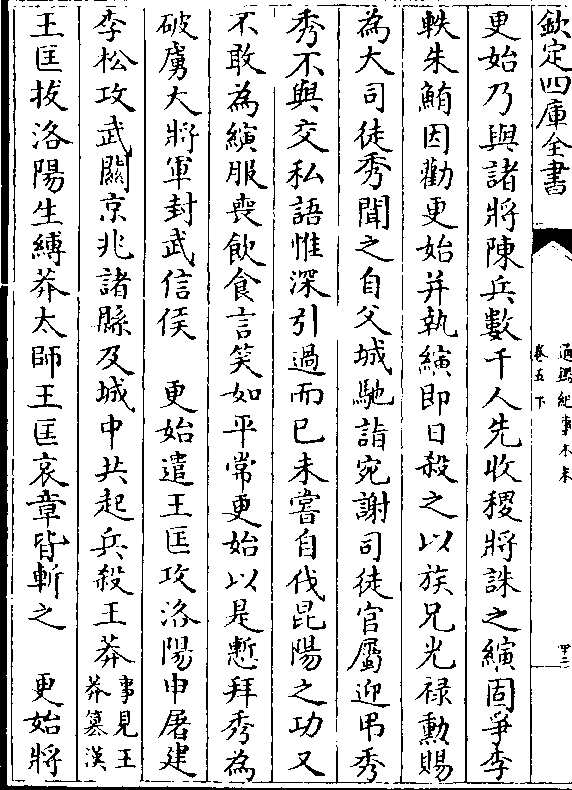 欽定四庫全書
通鑑紀事本末
卷五下
更始乃與諸將陳兵數千人先收稷將誅之縯固爭李
軼朱鮪因勸更始并執縯即日殺之以族兄光禄勲賜
為大司徒秀聞之自父城馳詣宛謝司徒官屬迎弔秀
秀不與交私語惟深引過而已未嘗自伐昆陽之功又
不敢為縯服喪飲食言笑如平常更始以是慙拜秀為
破虜大將軍封武信侯　更始遣王匡攻洛陽申屠建
李松攻武關京兆諸縣及城中共起兵殺王莽事見王莽簒漢
王匡拔洛陽生縛莽太師王匡哀章皆斬之　更始將